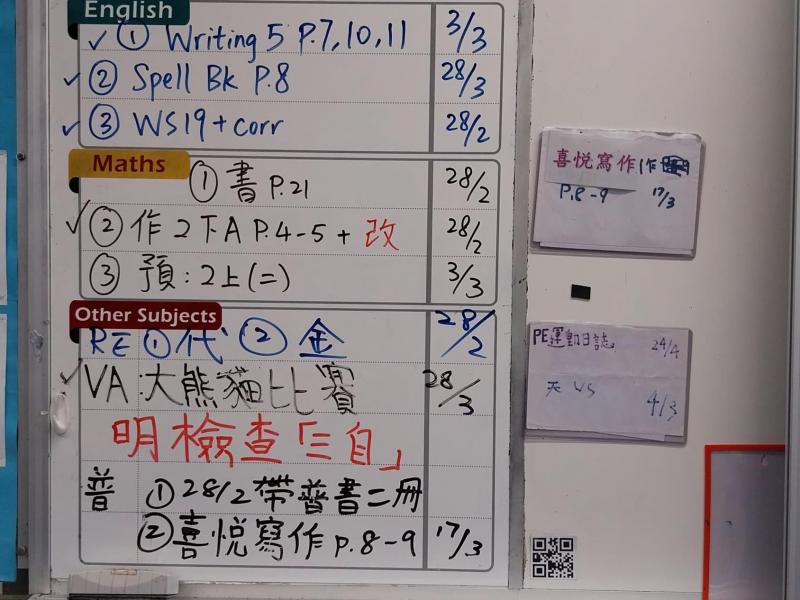 English
✓ ① Writing 5 P.7,10,11 3/3
✓ ② Spell Bk P.8 28/3
✓ ③ WS19+corr 28/2
Maths
① 書 P.21 28/2
✓ ② 作 2下A P.4-5 + 改 28/2
③ 預:2上(二) 3/3
Other Subjects
RE ① 代 ② 金 28/2
✓ VA:大熊貓比賽 28/3
明檢查「三自」
普 ① 28/2 帶普書二冊
② 喜悅寫作 p.8-9 17/3
喜悅寫作
P.8-9 17/3
PE運動日誌 24/4
WS 4/3